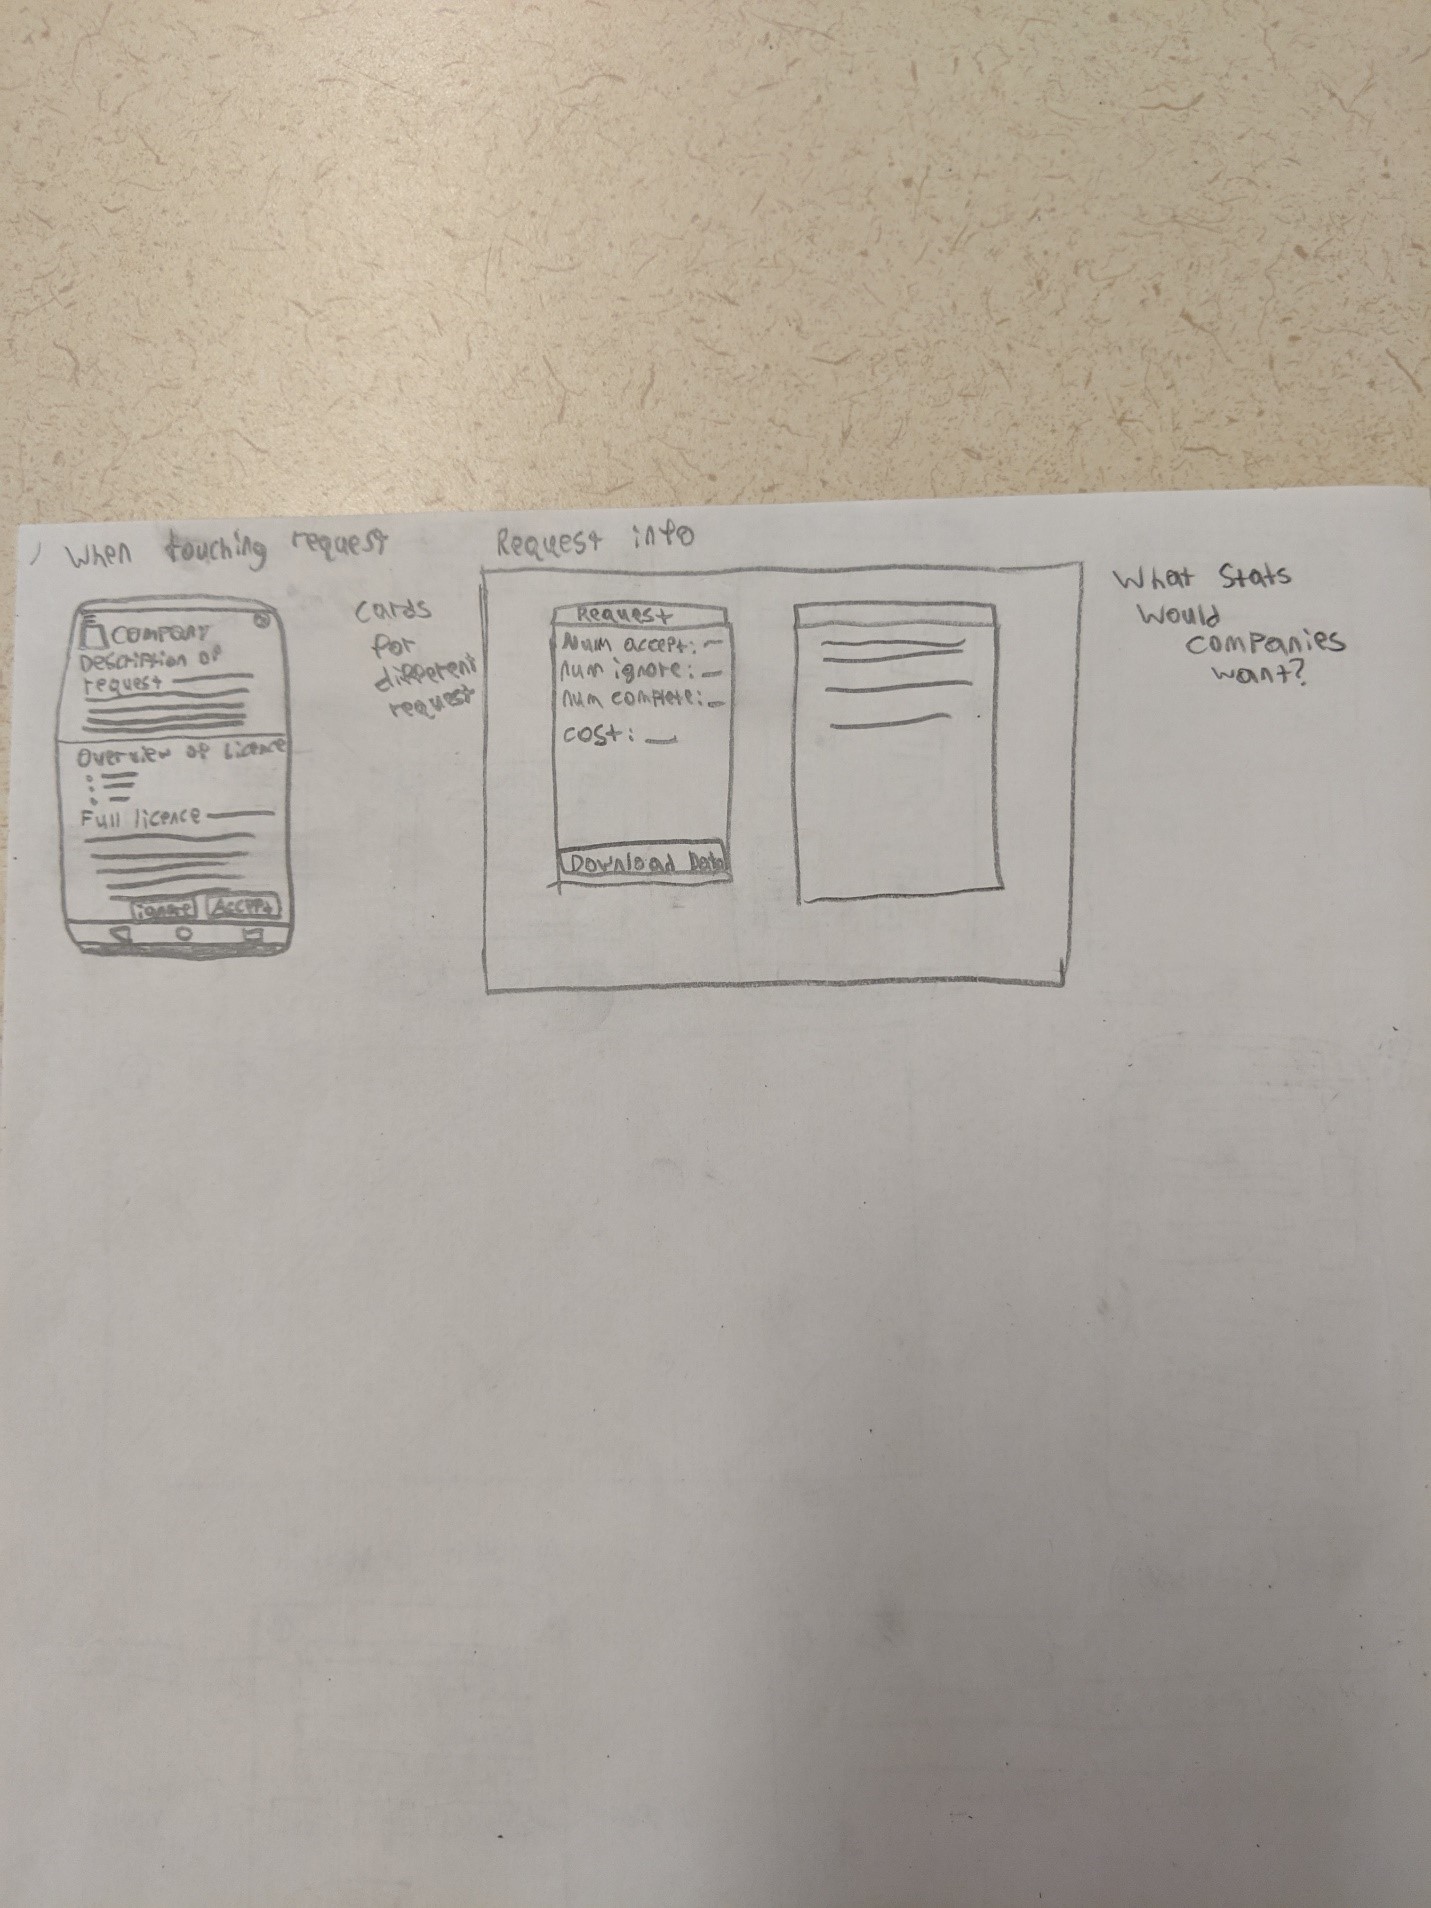 When touching request
COMPANY
Description of
request
Overview of Licence
Full licence
ignore Accept
cards
for
different
request
Request info
Request
Num accept:
num ignore:
num complete:
cost:
Download Data
What stats
would
companies
want?